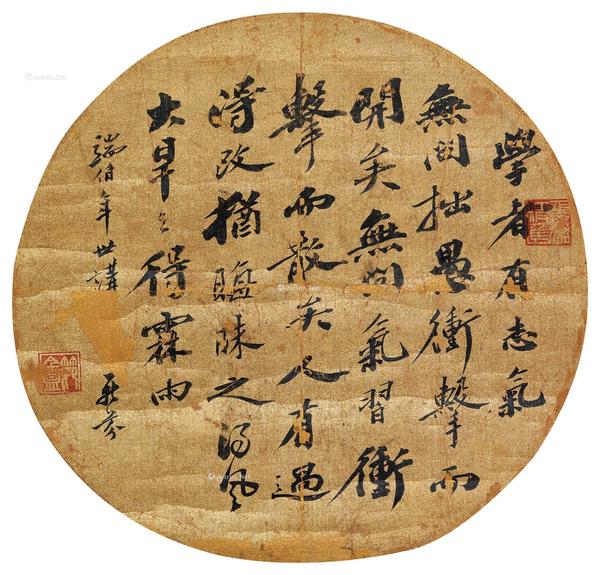 學者有志氣
無問拙愚衝擊而
開矣無問氣習衝
擊而散矣人有過
得改猶之得風
大旱之得霖雨
端伯年世講
芬